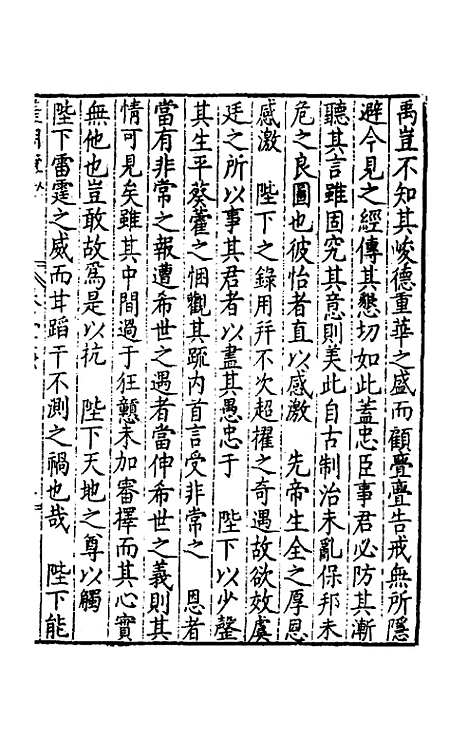 禹豈不知其峻德重華之盛而顧亹亹告戒無所隱
避今見之經傳其懇切如此蓋忠臣事君必防其漸
聽其言雖固究其意則美此自古制治未亂保邦未
危之良圖也彼怡者直以感激　先帝生全之厚恩
感激　陛下之錄用幷不次超擢之奇遇故欲效虞
廷之所以事其君者以盡其愚忠于　陛下以少罄
其生平葵藿之悃觀其疏內首言受非常之　恩者
當有非常之報遭希世之遇者當伸希世之義則其
情可見矣雖其中間過于狂戇未加審擇而其心實
無他也豈敢故爲是以抗　陛下天地之尊以觸
陛下雷霆之威而甘蹈干不測之禍也哉　陛下能